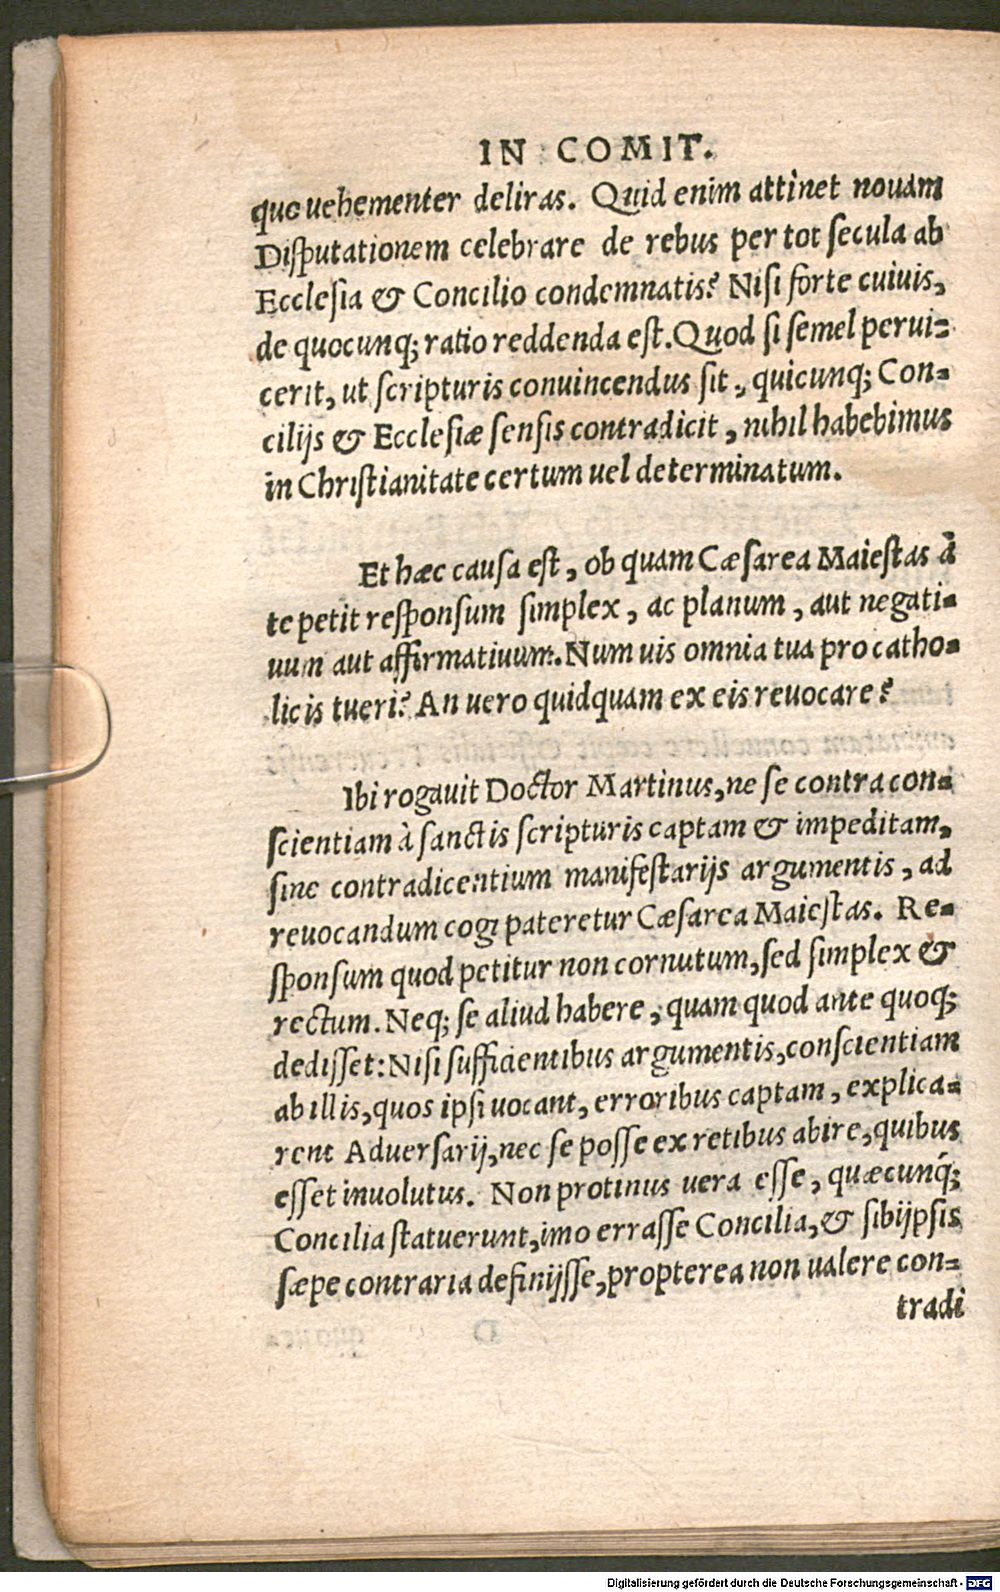 IN COMIT.
quo uehementer deliras. Quid enim attinet nouam
Disputationem celebrare de rebus per tot secula ab
Ecclesia & Concilio condemnatis? Nisi forte cuiuis,
de quocunq; ratio reddenda est. Quod si semel perui=
cerit, ut scripturis conuincendus sit, quicunq; Con=
cilijs & Ecclesiæ sensis contradicit, nihil habebimus
in Christianitate certum uel determinatum.
Et hæc causa est, ob quam Cæsarea Maiestas à
te petit responsum simplex, ac planum, aut negati=
uum aut affirmatiuum. Num uis omnia tua pro catho=
licis tueri? An uero quidquam ex eis reuocare?
Ibi rogauit Doctor Martinus, ne se contra con=
scientiam à sanctis scripturis captam & impeditam,
sine contradicentium manifestarijs argumentis, ad
reuocandum cogi pateretur Cæsarea Maiestas. Re=
sponsum quod petitur non cornutum, sed simplex &
rectum. Neq; se aliud habere, quam quod ante quoq;
dedisset: Nisi sufficientibus argumentis, conscientiam
ab illis, quos ipsi uocant, erroribus captam, explica=
rent Aduersarij, nec se posse ex retibus abire, quibus
esset inuolutus. Non protinus uera esse, quæcunq́;
Concilia statuerunt, imo errasse Concilia, & sibijpsis
sæpe contraria definijsse, propterea non ualere con=
tradi
Digitalisierung gefördert durch die Deutsche Forschungsgemeinschaft - DFG